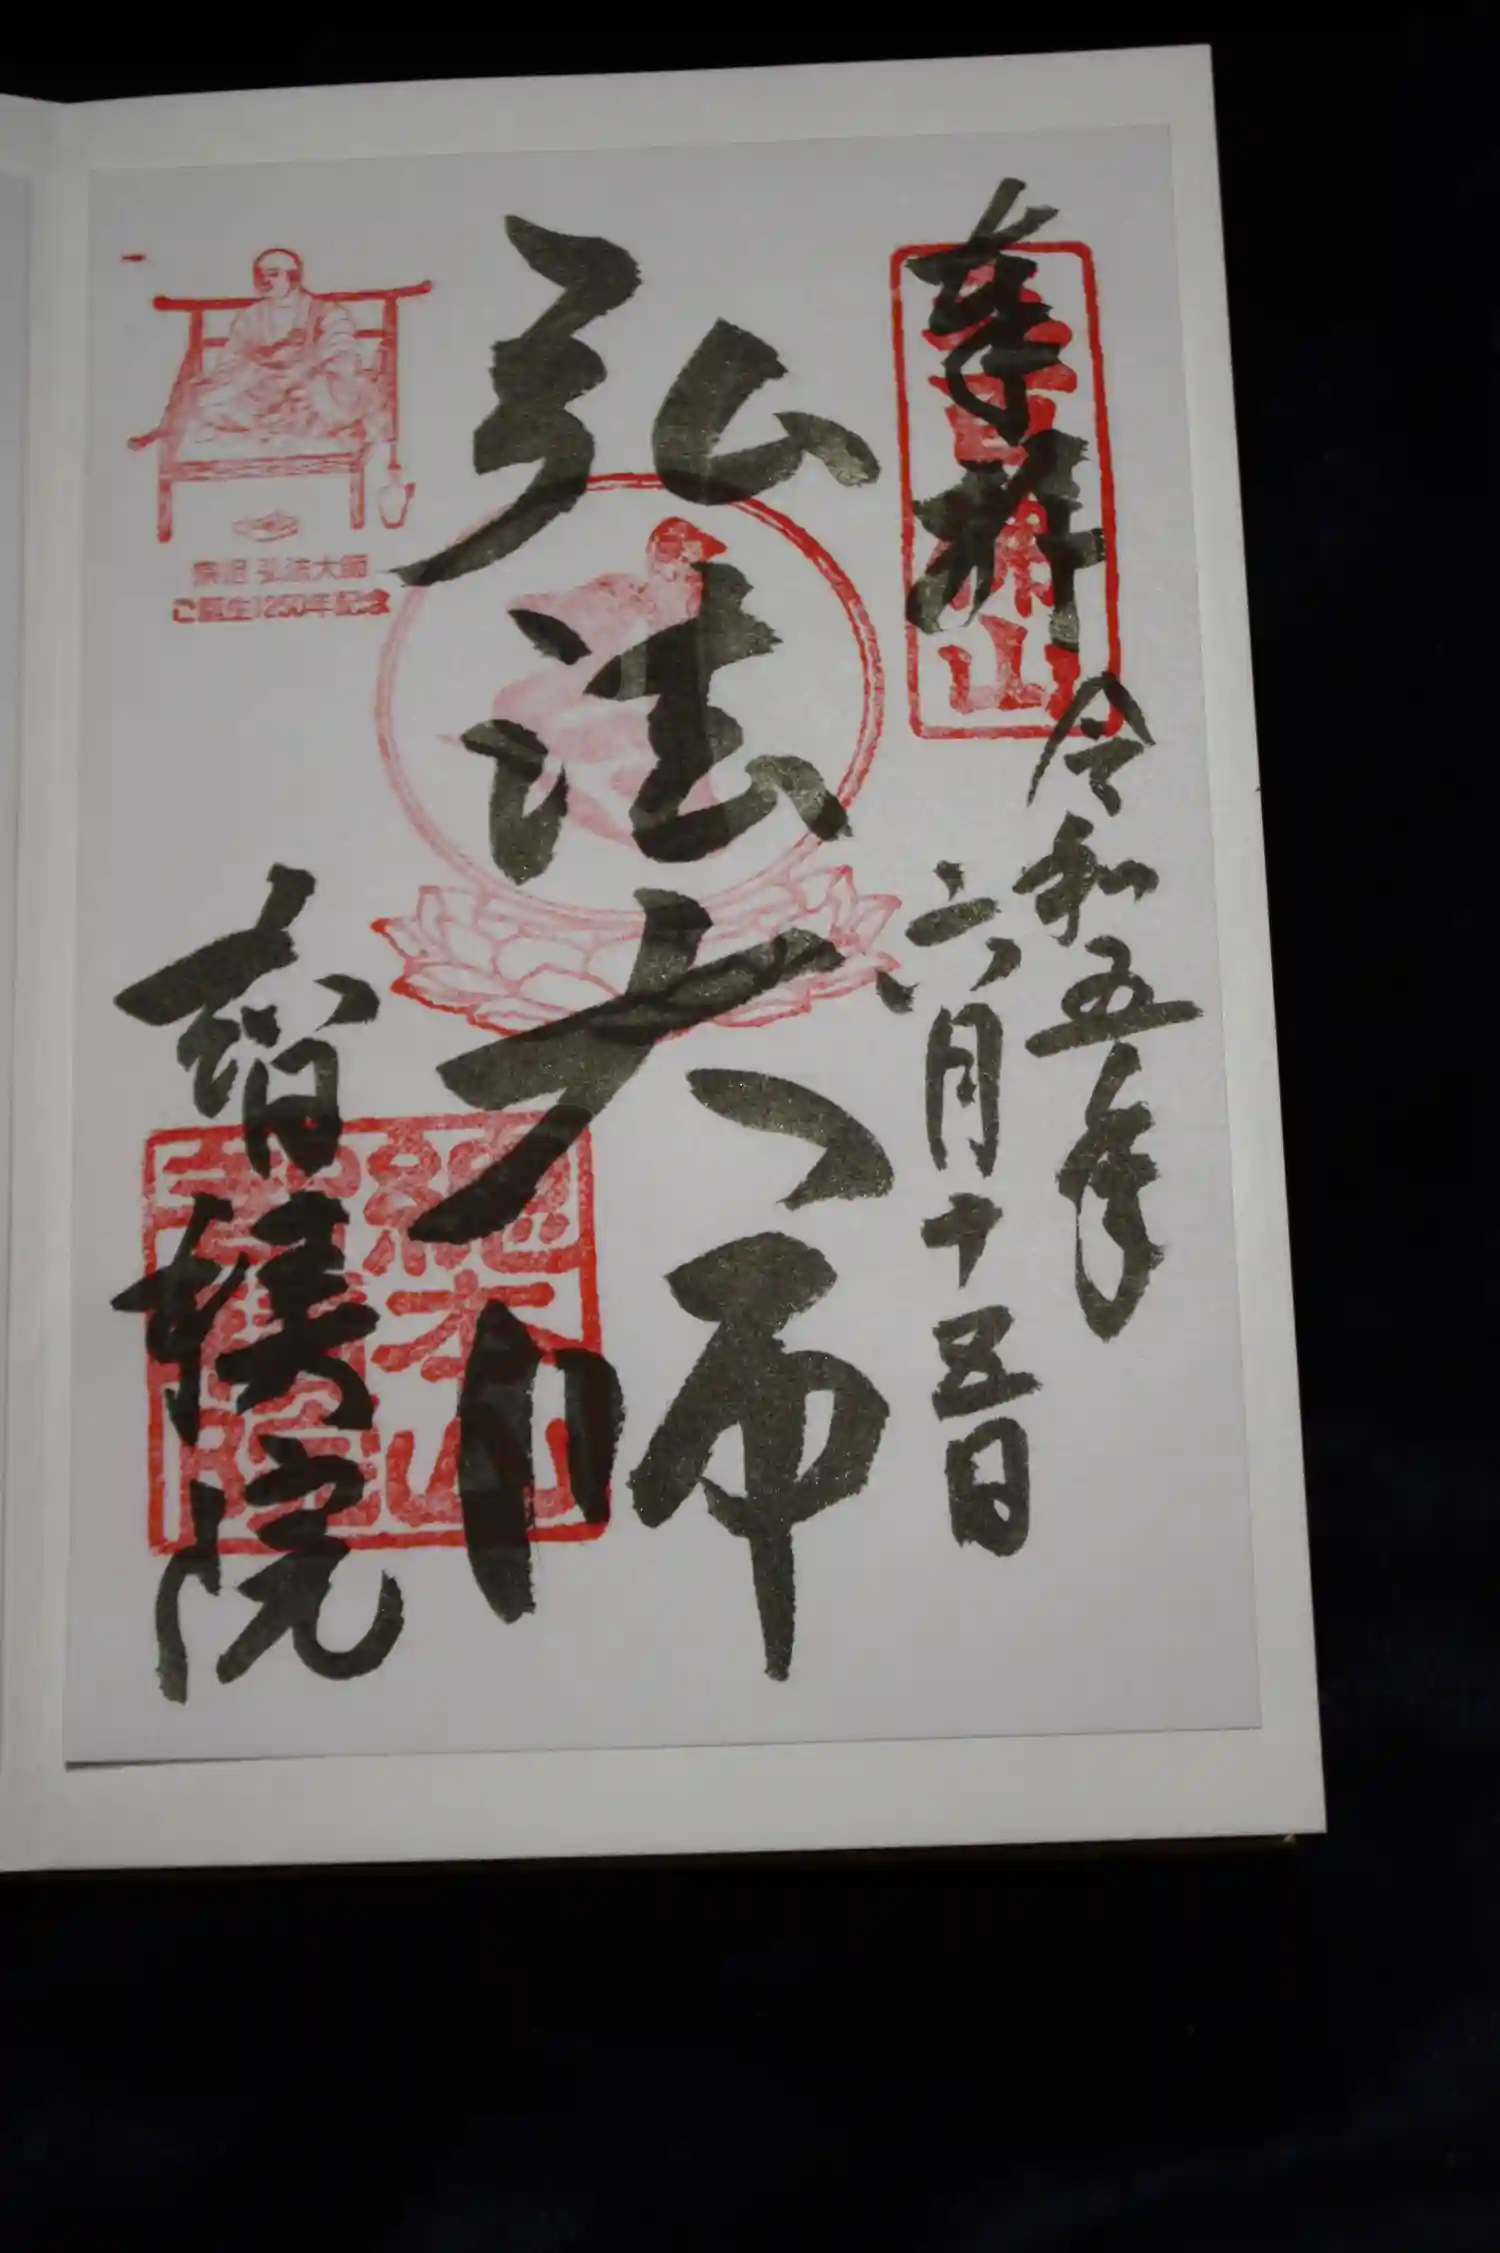 奉拝
五百佛山
令和五年
六月十五日
弘法大師
宗祖 弘法大師
ご誕生1250年記念
智積院
總本山
智積院